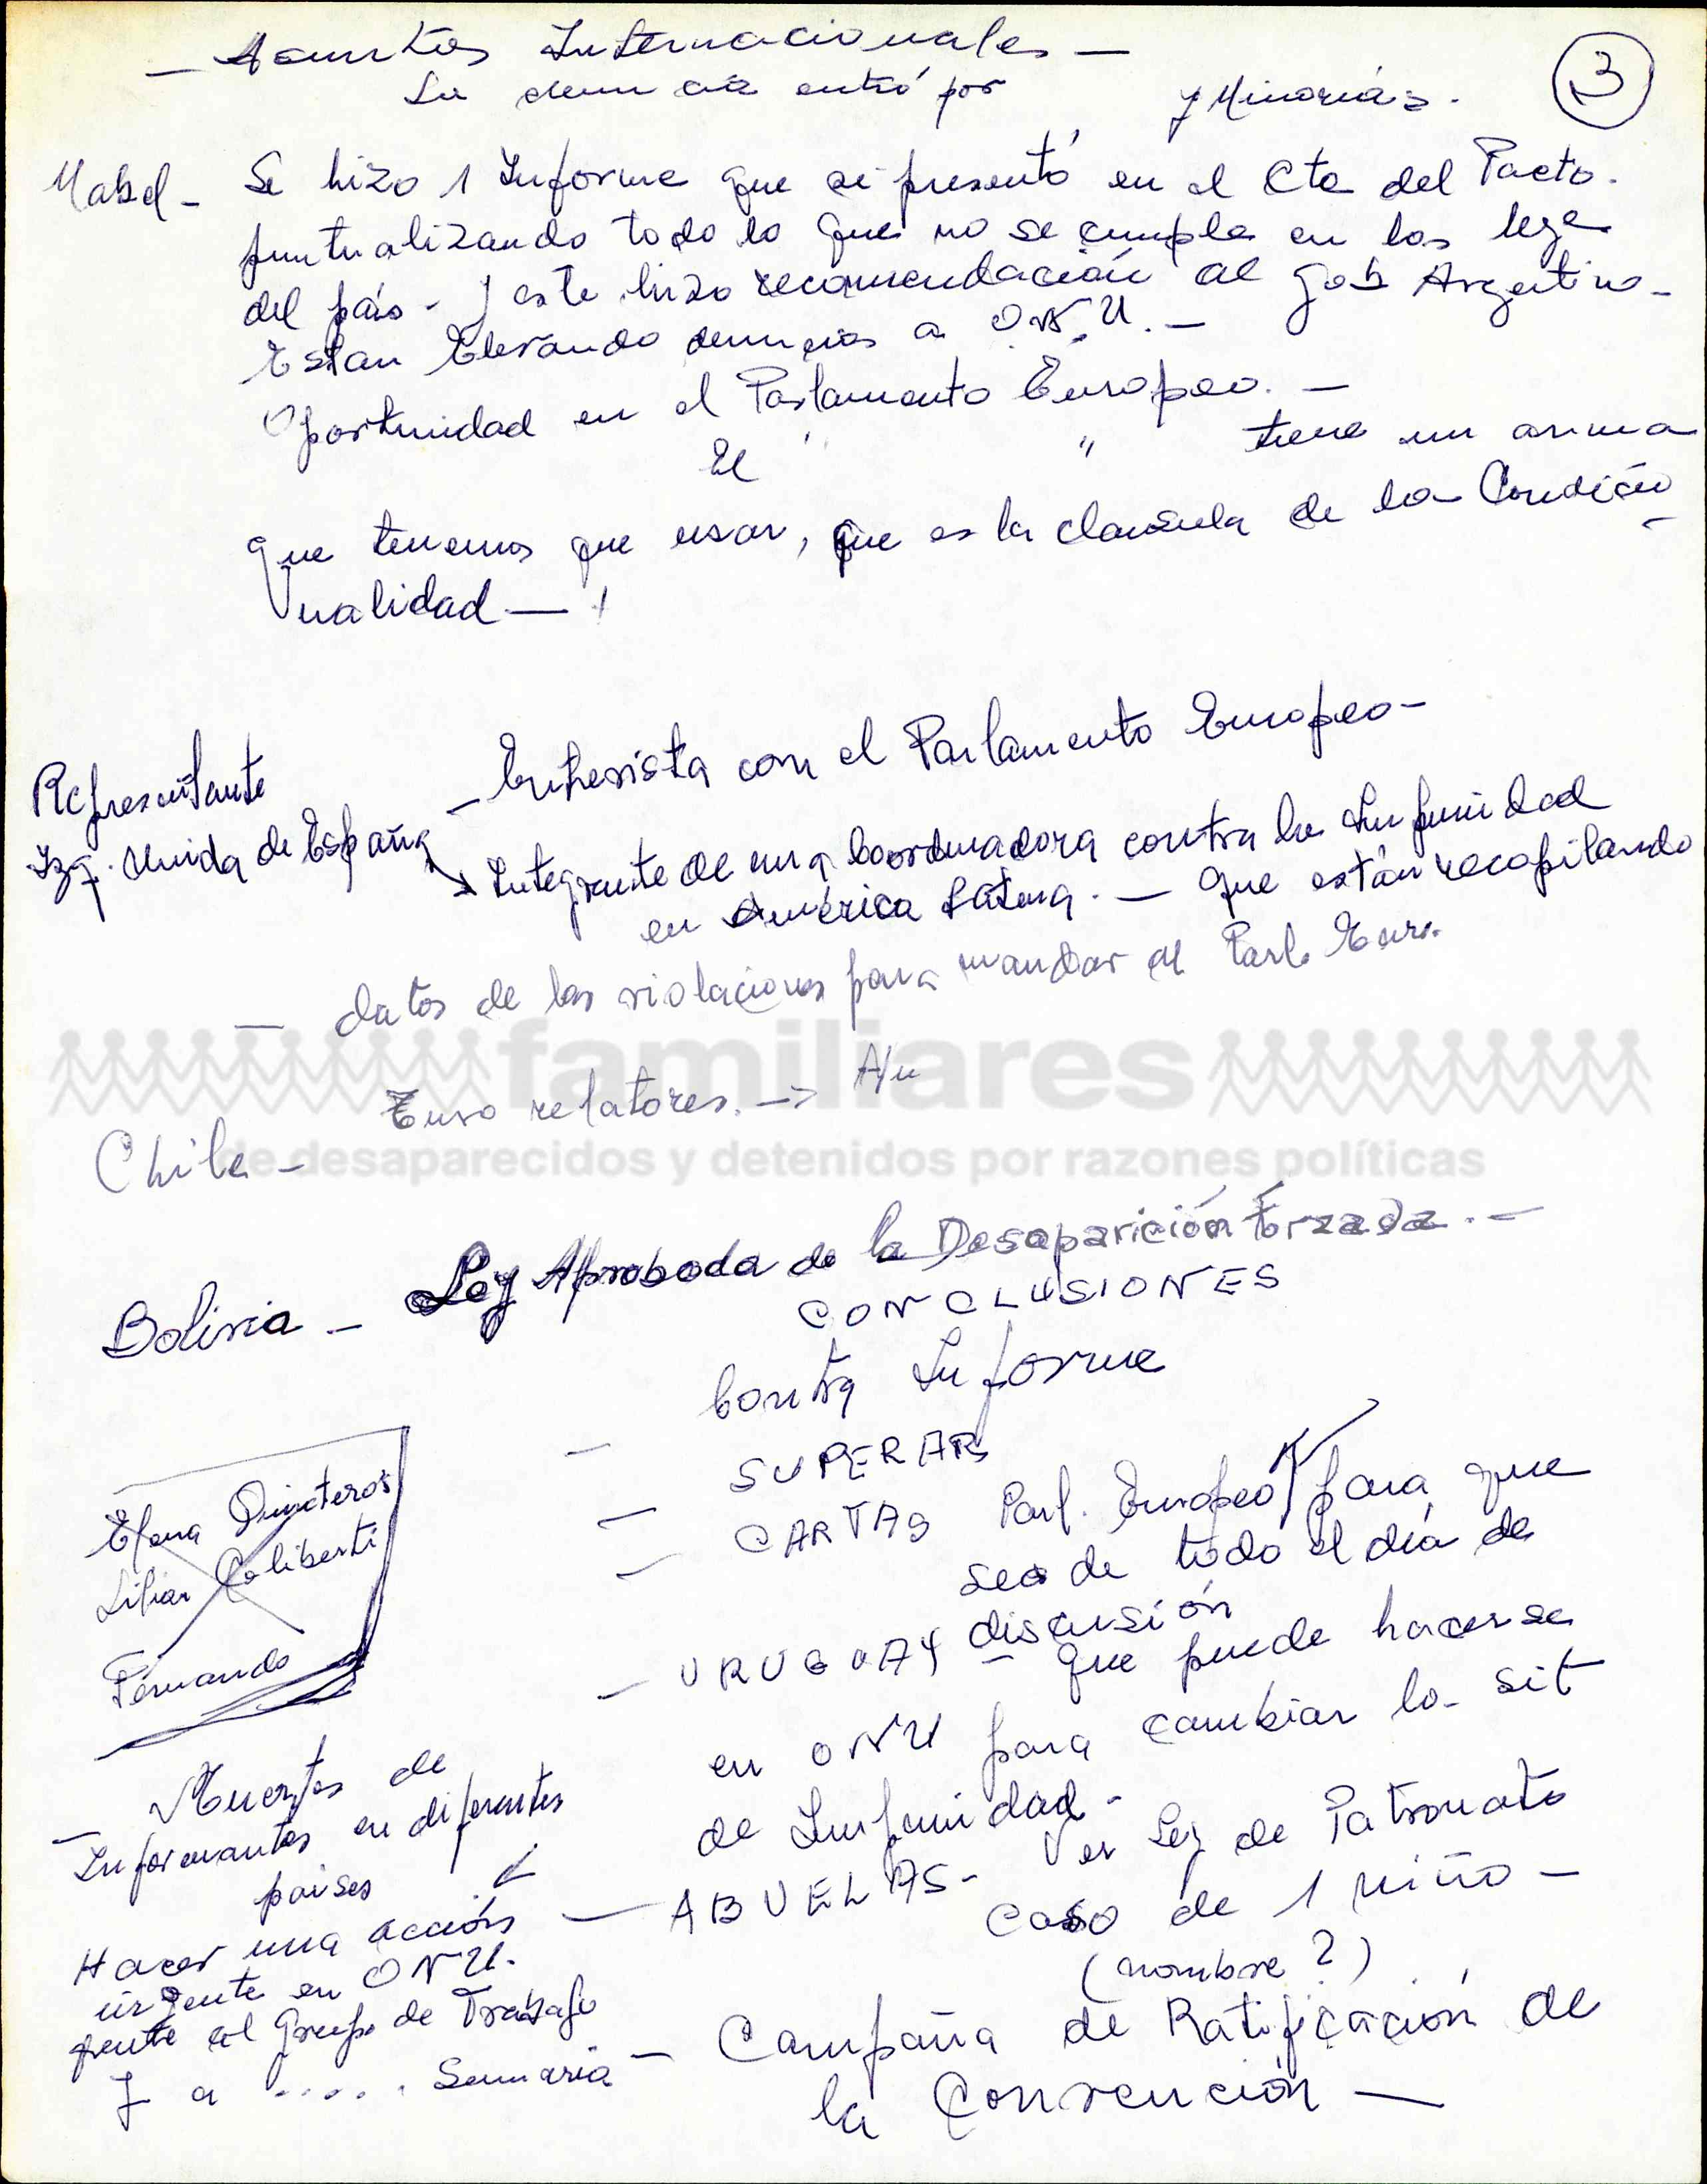 — Asuntos Internacionales —
3
La denuncia entró por
y Minorías.
Mabel - Se hizo 1 Informe que se presentó en el Cte del Pacto.
puntualizando todo lo que no se cumple en las leye
del país - y este hizo recomendación al gob Argentino -
Estan Elevando denuncias a O.N.U. —
Oportunidad en el Parlamento Europeo. —
El " " tiene un arma
que tenemos que usar, que es la clausula de la Condicio
nalidad —
Representante
Izq. Unida de España
— Entrevista con el Parlamento Europeo —
Integrante de una Coordinadora contra la Impunidad
en América Latina. — Que están recopilando
— datos de las violaciones para mandar al Parl. Euro.
familiares
Tuvo relatores. —>
de desaparecidos y detenidos por razones políticas
Chile -
Bolivia - Ley Aprobada de la Desaparición Forzada. —
CONCLUSIONES
— Contra Informe
— SUPERAR
— CARTAS Parl. Europeo para que
sea de todo el día de
discusión
Elena Quinteros
Lilian Celiberti
Fernando
— URUGUAY — Que puede hacerse
en ONU para cambiar la sit
de Impunidad -
— ABUELAS - Ver Ley de Patronato
Caso de 1 niño —
(nombre ?)
— Campaña de Ratificación de
la Convención —
— Muertes de
Informantes en diferentes
paises
Hacer una acción
urgente en ONU.
frente al Grupo de Trabajo
y a ..... Sumaria